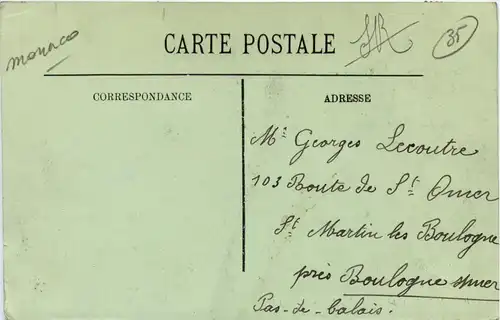 monaco
CARTE POSTALE
35
CORRESPONDANCE
ADRESSE
Mr Georges Lecoutre
103 Route de St Omer
St Martin les Boulogne
près Boulogne s/mer
Pas-de-Calais.